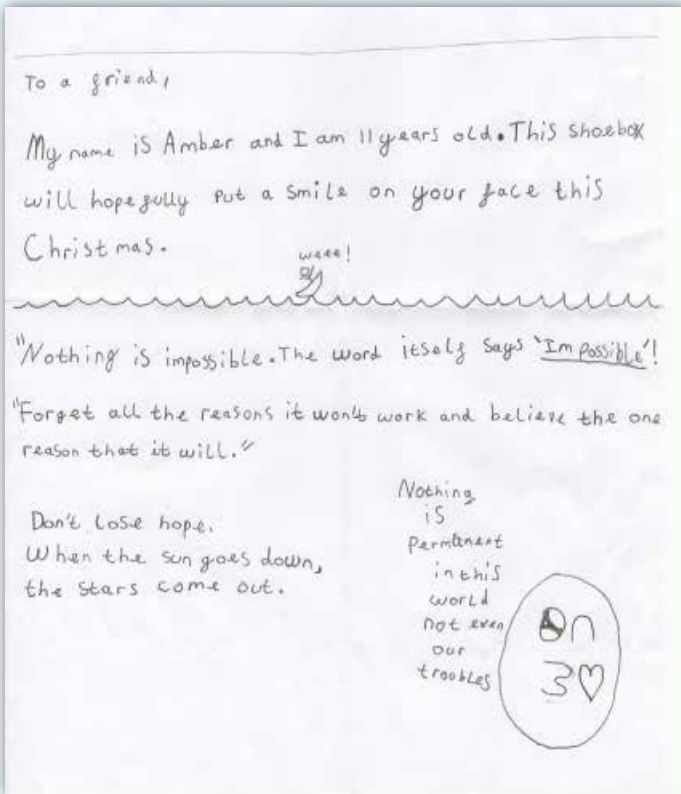 To a friend,
My name is Amber and I am 11 years old. This shoebox
will hopefully put a smile on your face this
Christmas.
weee!
"Nothing is impossible. The word itself says 'Im possible'!
"Forget all the reasons it won't work and believe the one
reason that it will."
Don't lose hope.
When the sun goes down,
the stars come out.
Nothing
is
permenent
in this
world
not even
our
troubles